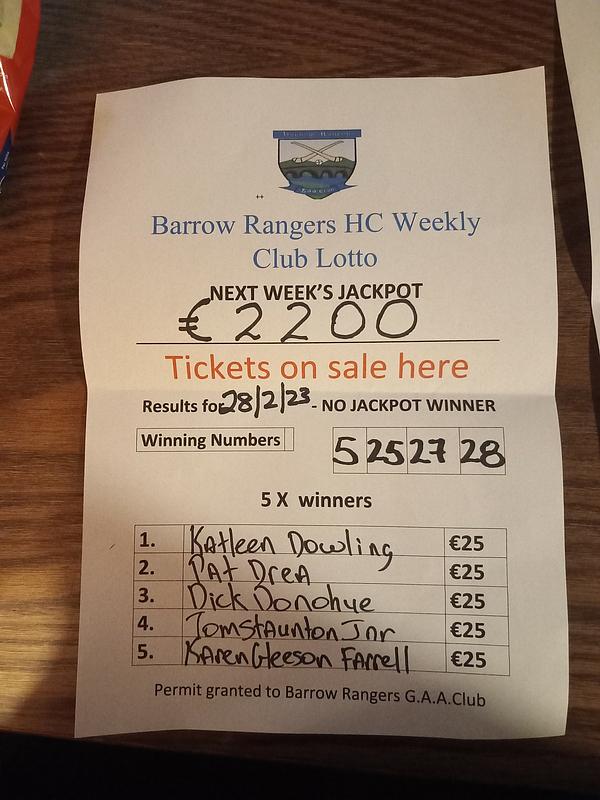 Barrow Rangers HC Weekly
Club Lotto
NEXT WEEK'S JACKPOT
€2200
Tickets on sale here
Results for 28/2/23 - NO JACKPOT WINNER
Winning Numbers 5 25 27 28
5 X winners
1. Katleen Dowling €25
2. PAt DreA €25
3. Dick Donohye €25
4. Tom StAunton Jnr €25
5. KAren Gleeson FArrell €25
Permit granted to Barrow Rangers G.A.A.Club